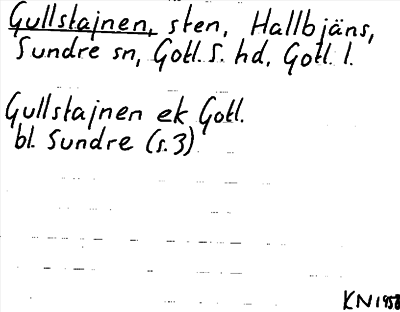 Gullstajnen, sten, Hallbjäns,
Sundre sn, Gotl. S. hd, Gotl. l.
Gullstajnen ek Gotl.
bl. Sundre (s. 3)
KN 1958